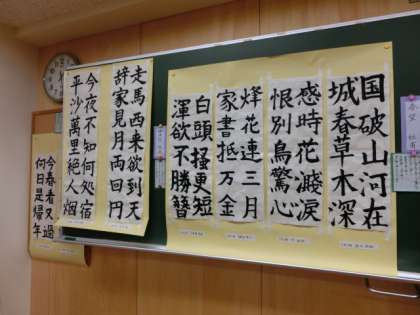 国破山河在
城春草木深
感時花濺涙
恨別鳥驚心
烽花連三月
家書抵万金
白頭掻更短
渾欲不勝簪
走馬西来欲到天
辞家見月両回円
今夜不知何処宿
平沙萬里絶人烟
今春看又過
何日是帰年
春望